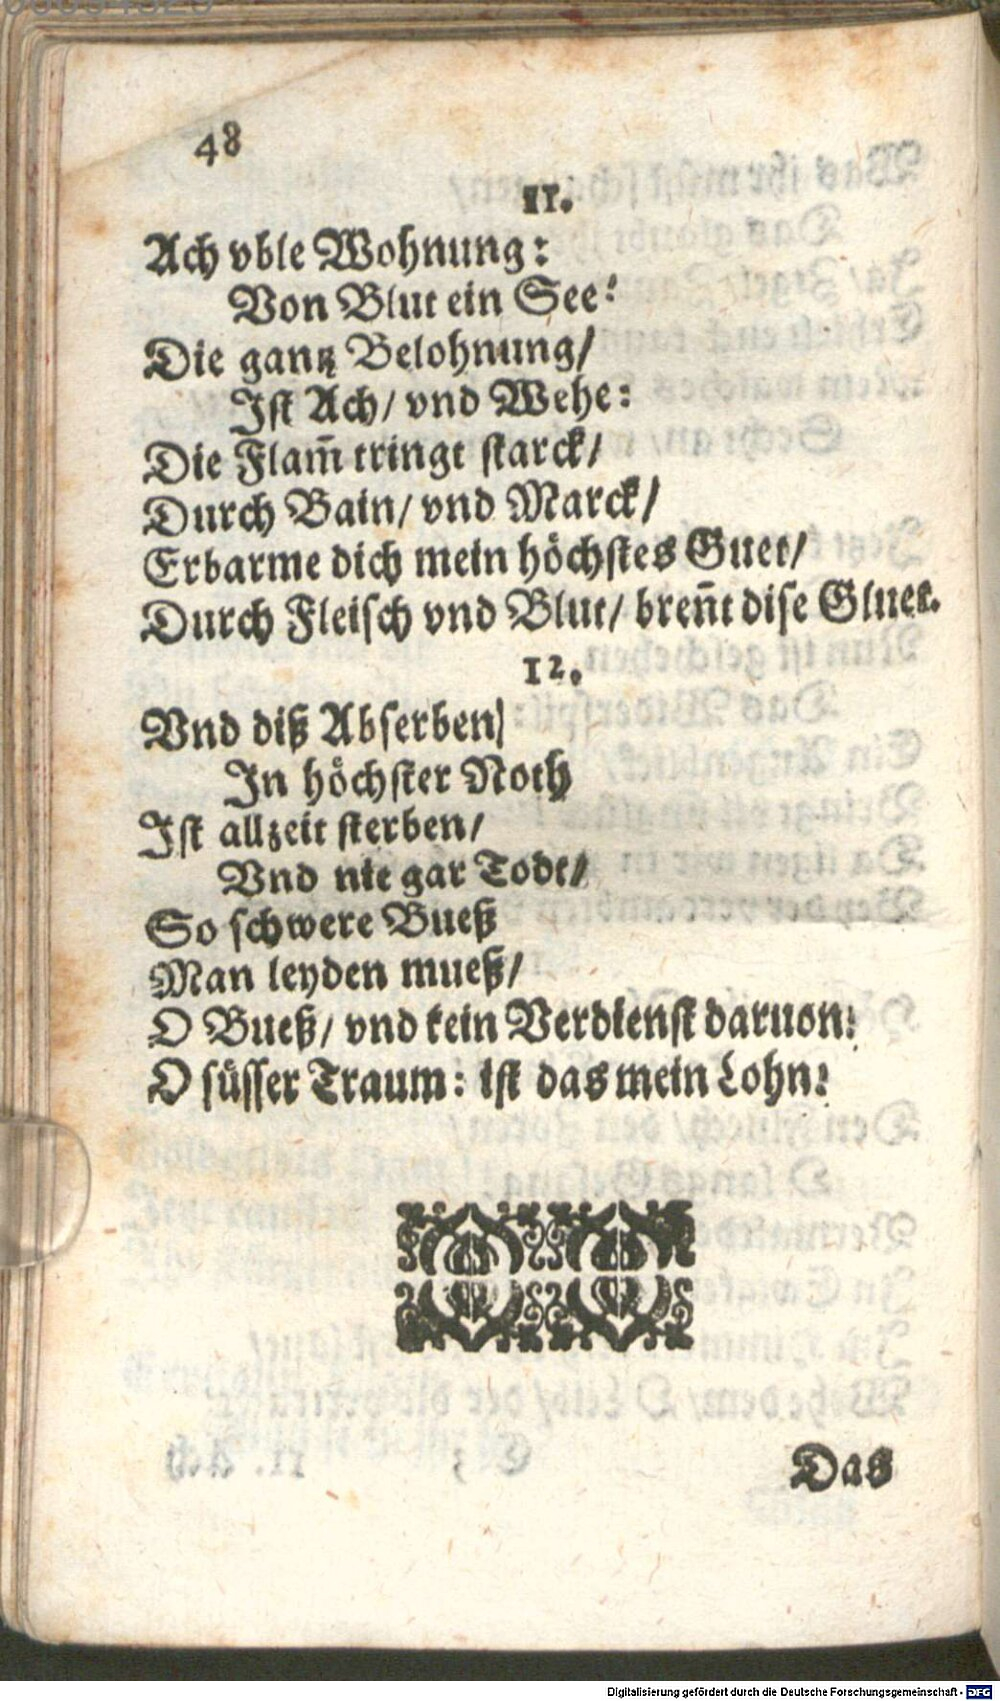 48
11.
Ach vble Wohnung:
Von Blut ein See:
Die gantz Belohnung/
Ist Ach/ vnd Wehe:
Die Flam̃ tringt starck/
Durch Bain/ vnd Marck/
Erbarme dich mein höchstes Guet/
Durch Fleisch vnd Blut/ breñt dise Gluet.
12.
Vnd diß Abserben/
In höchster Noth
Ist allzeit sterben/
Vnd nie gar Todt/
So schwere Bueß
Man leyden mueß/
O Bueß/ vnd kein Verdienst daruon!
O süsser Traum: ist das mein Lohn?
Das
Digitalisierung gefördert durch die Deutsche Forschungsgemeinschaft - DFG